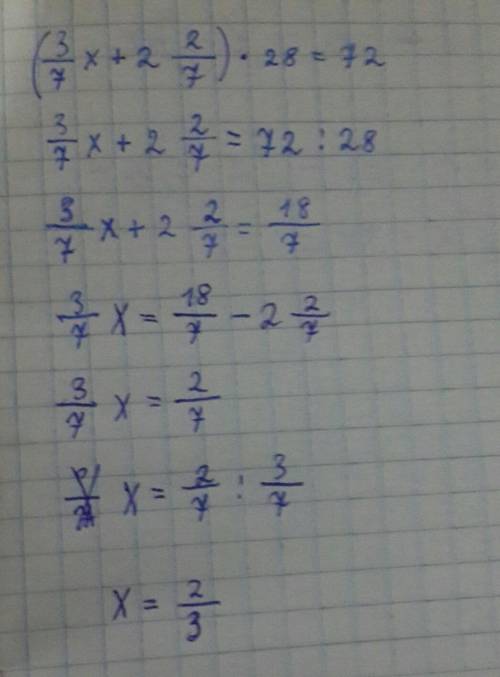 (3/7 x + 2 2/7) · 28 = 72
3/7 x + 2 2/7 = 72 : 28
3/7 x + 2 2/7 = 18/7
3/7 x = 18/7 - 2 2/7
3/7 x = 2/7
x = 2/7 : 3/7
x = 2/3